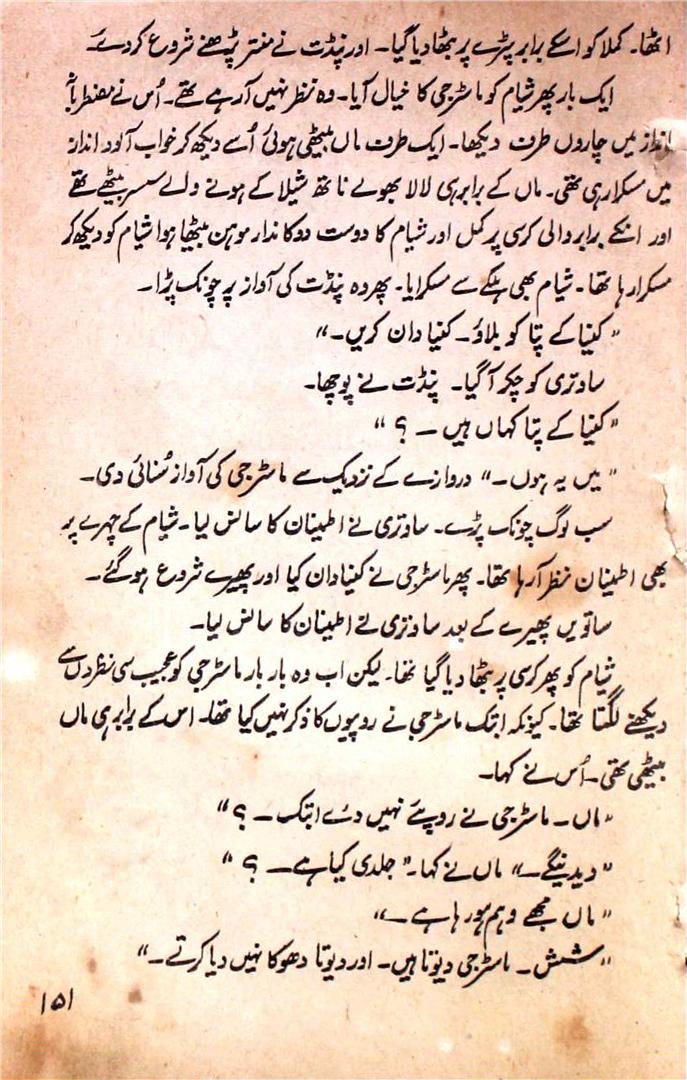 اٹھا۔ کملا کو اسکے برابر پٹرے پر بٹھا دیا گیا۔ اور پنڈت نے منتر پڑھنے شروع کر دئے۔
ایک بار پھر شیام کو ماسٹر جی کا خیال آیا۔ وہ نظر نہیں آ رہے تھے۔ اُس نے مضطربانہ
انداز میں چاروں طرف دیکھا۔ ایک طرف ماں بیٹھی ہوئی اُسے دیکھ کر خواب آلود انداز
میں مسکرا رہی تھی۔ ماں کے برابر ہی لالا بھولے ناتھ شیلا کے ہونے والے سسر بیٹھے تھے
اور انکے برابر والی کرسی پر کمل اور شیام کا دوست دوکاندار موہن بیٹھا ہوا شیام کو دیکھ کر
مسکرا رہا تھا۔ شیام بھی ہلکے سے مسکرایا۔ پھر وہ پنڈت کی آواز پر چونک پڑا۔
"کنیا کے پتا کو بلاؤ۔ کنیا دان کریں۔"
ساوتری کو چکر آ گیا۔ پنڈت نے پوچھا۔
"کنیا کے پتا کہاں ہیں ۔ ؟"
"میں یہ ہوں۔" دروازے کے نزدیک سے ماسٹر جی کی آواز سُنائی دی۔
سب لوگ چونک پڑے۔ ساوتری نے اطمینان کا سانس لیا۔ شیام کے چہرے پر
بھی اطمینان نظر آ رہا تھا۔ پھر ماسٹر جی نے کنیا دان کیا اور پھیرے شروع ہو گئے۔
ساتویں پھیرے کے بعد ساوتری نے اطمینان کا سانس لیا۔
شیام کو پھر کرسی پر بٹھا دیا گیا تھا۔ لیکن اب وہ بار بار ماسٹر جی کو عجیب سی نظروں سے
دیکھنے لگتا تھا۔ کیونکہ ابتک ماسٹر جی نے روپیوں کا ذکر نہیں کیا تھا۔ اس کے برابر ہی ماں
بیٹھی تھی۔ اُس نے کہا۔
"ماں۔ ماسٹر جی نے روپئے نہیں دئے ابتک ۔ ؟"
"دیدینگے۔" ماں نے کہا۔ "جلدی کیا ہے ۔ ؟"
"ماں مجھے وہم ہو رہا ہے ۔"
"شش۔ ماسٹر جی دیوتا ہیں۔ اور دیوتا دھوکا نہیں دیا کرتے۔"
۱۵۱